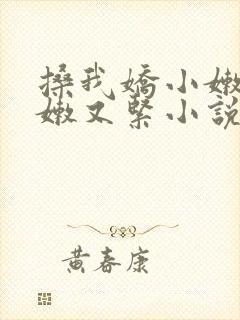 搡我嬌小嫩
嫩又緊小說
黃春康